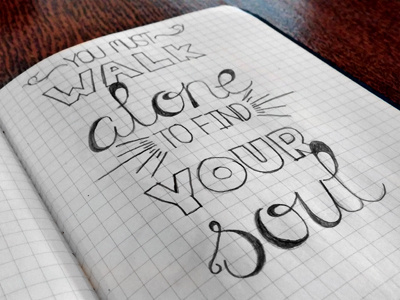 YOU MUST
WALK
alone
TO FIND
YOUR
soul